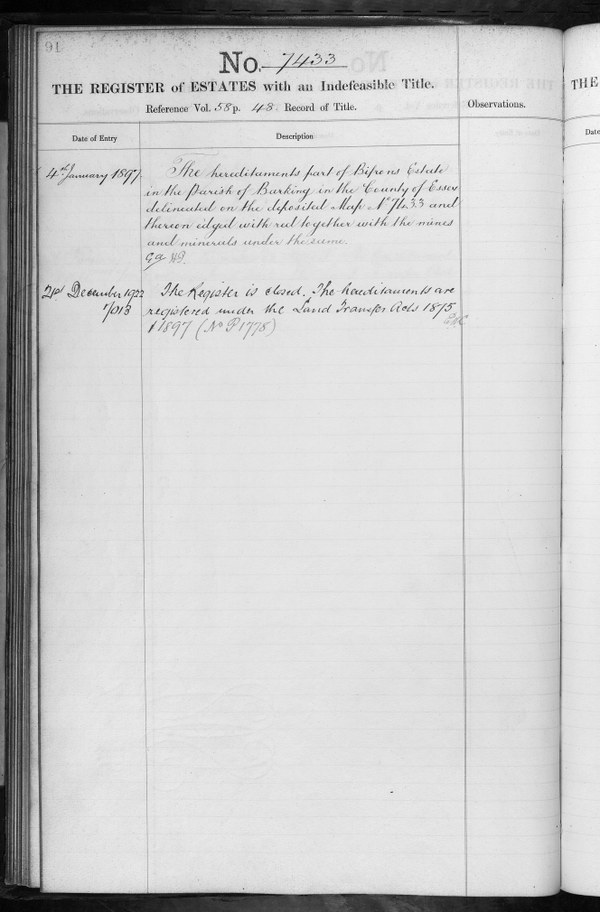 91
No. 7433
THE REGISTER of ESTATES with an Indefeasible Title.
Reference Vol. 58 p. 48. Record of Title.
Observations.
Date of Entry
Description
4th January 1897.
The hereditaments part of Bifrons Estate
in the Parish of Barking in the County of Essex
delineated on the deposited Map No 7433 and
thereon edged with red together with the mines
and minerals under the same.
December 1922
The Register is closed. The hereditaments are
registered under the Land Transfer Acts 1875
& 1897 (No P1778)
THE
Date